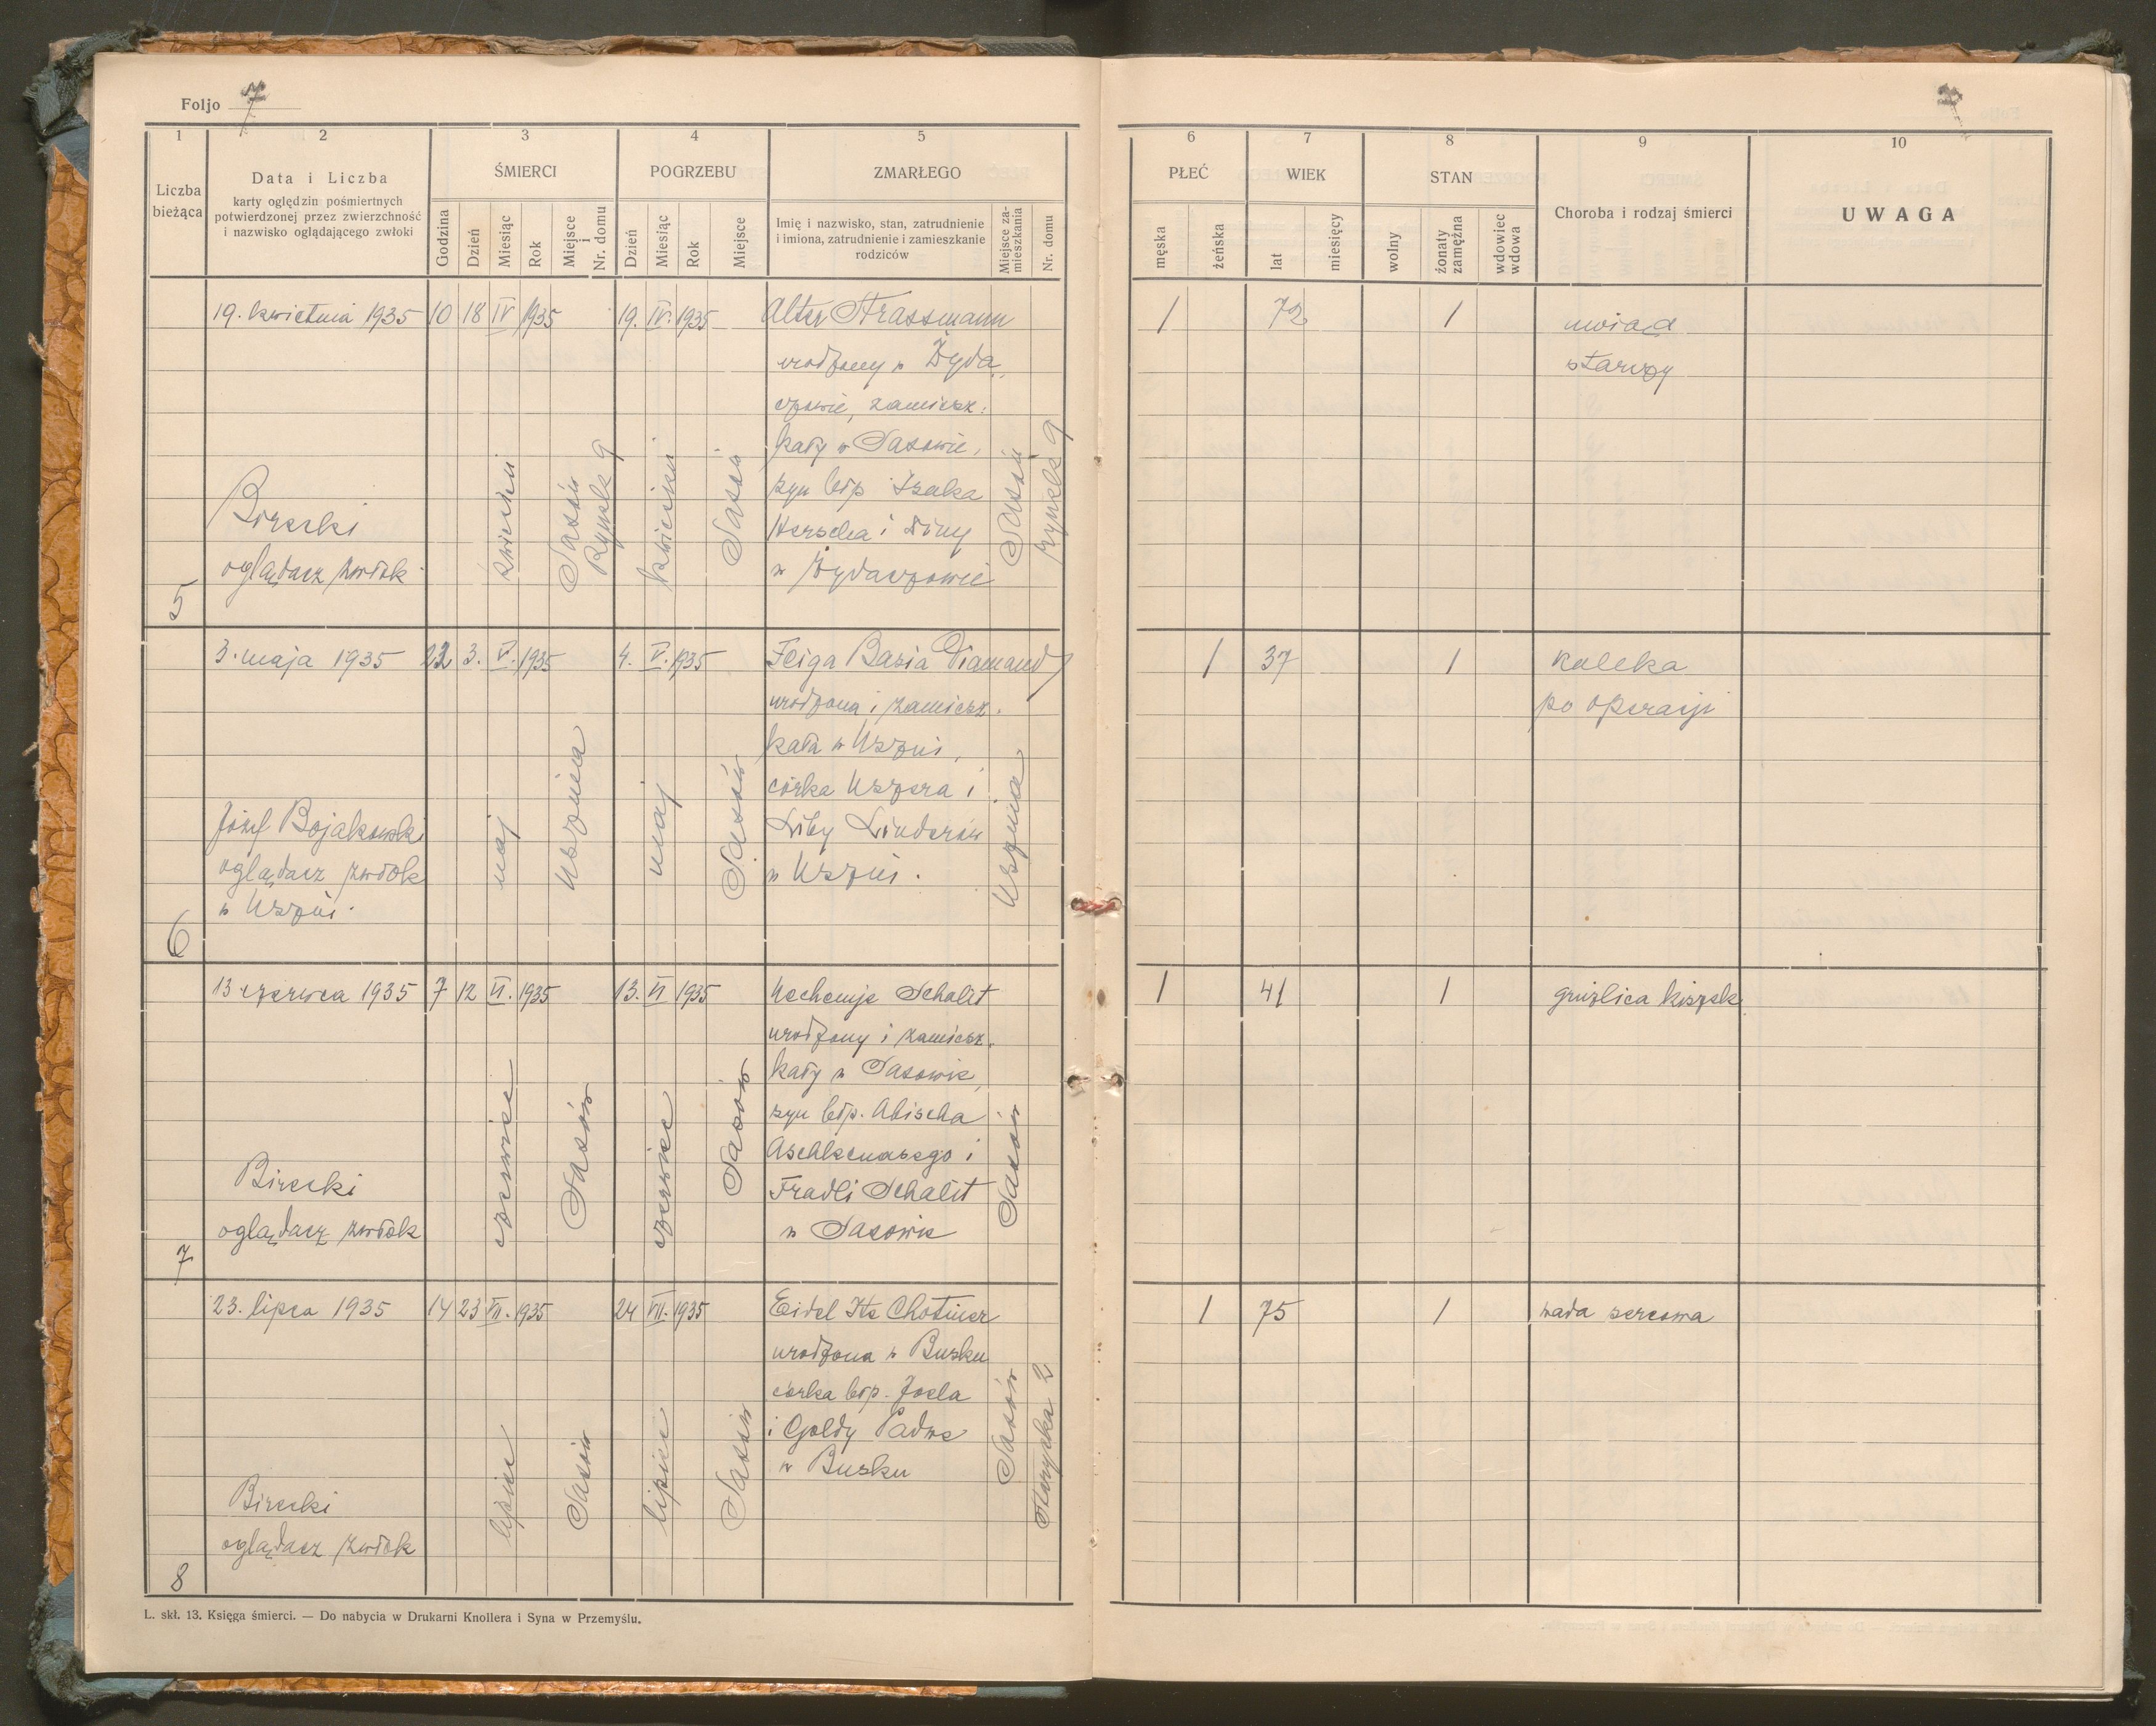 Foljo 7
1 2 3 4 5 6 7 8 9 10
Liczba bieżąca
Data i Liczba
karty oględzin pośmiertnych
potwierdzonej przez zwierzchność
i nazwisko oglądającego zwłoki
ŚMIERCI
Godzina
Dzień
Miesiąc
Rok
Miejsce i Nr. domu
POGRZEBU
Dzień
Miesiąc
Rok
Miejsce
ZMARŁEGO
Imię i nazwisko, stan, zatrudnienie
i imiona, zatrudnienie i zamieszkanie
rodziców
Miejsce zamieszkania
Nr. domu
PŁEĆ
męska
żeńska
WIEK
lat
miesięcy
STAN
wolny
żonaty zamężna
wdowiec wdowa
Choroba i rodzaj śmierci
UWAGA
5
19. kwietnia 1935
Birecki
oglądacz zwłok
10 18 IV 1935
kwiecień
Sasów
Rynek 9
19. IV. 1935
kwiecień
Sasów
Alter Strassmann
urodzony w Żyda
czowie, zamiesz.
kały w Sasowie,
syn błp Izaka
Herscha i Diny
w Żydaczowie
Sasów
Rynek 9
1 72 1
uwiąd
starczy
6
3. maja 1935
Józef Bojakowski
oglądacz zwłok
w Uszni.
22 3. V. 1935
maj
Usznia
4. V. 1935
maj
Sasów
Feiga Basia Diamand
urodzona i zamiesz.
kała w Uszni,
córka Uszera i
Liby Linderów
w Uszni.
Usznia
1 37 1
kaleka
po operacji
7
13 czerwca 1935
Birecki
oglądacz zwłok
7 12 VI. 1935
czerwiec
Sasów
13. VI 1935
czerwiec
Sasów
Nechemje Schalit
urodzony i zamiesz.
kały w Sasowie,
syn błp. Abischa
Aschkenasego i
Fradli Schalit
w Sasowie
Sasów
1 41 1
gruźlica kiszek
8
23. lipca 1935
Birecki
oglądacz zwłok
14 23 VII. 1935
lipiec
Sasów
24 VII. 1935
lipiec
Sasów
Eidel Ite Chotiner
urodzona w Busku
córka błp. Joela
i Goldy Padwe
w Busku
Sasów
1 75 1
wada sercowa
L. skł. 13. Księga śmierci. — Do nabycia w Drukarni Knollera i Syna w Przemyślu.